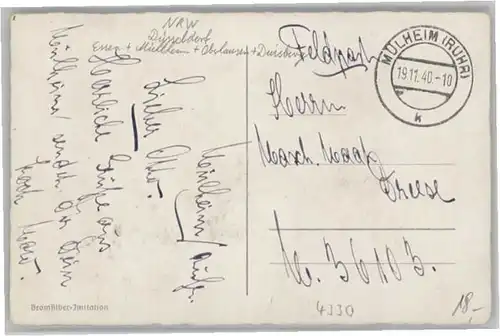 NRW
Düsseldorf
Essen + Mülheim + Oberhausen + Duisburg
Mülheim/Ruhr
Lieber Otto.
Herzliche Grüße aus
Mülheim sendet Dir Dein
Feldpost
MÜLHEIM (RUHR)
19.11.40.-10
k
Herrn
Masch. Maat
Driese
M. 36103.
4330
18,-
Bromsilber-Imitation